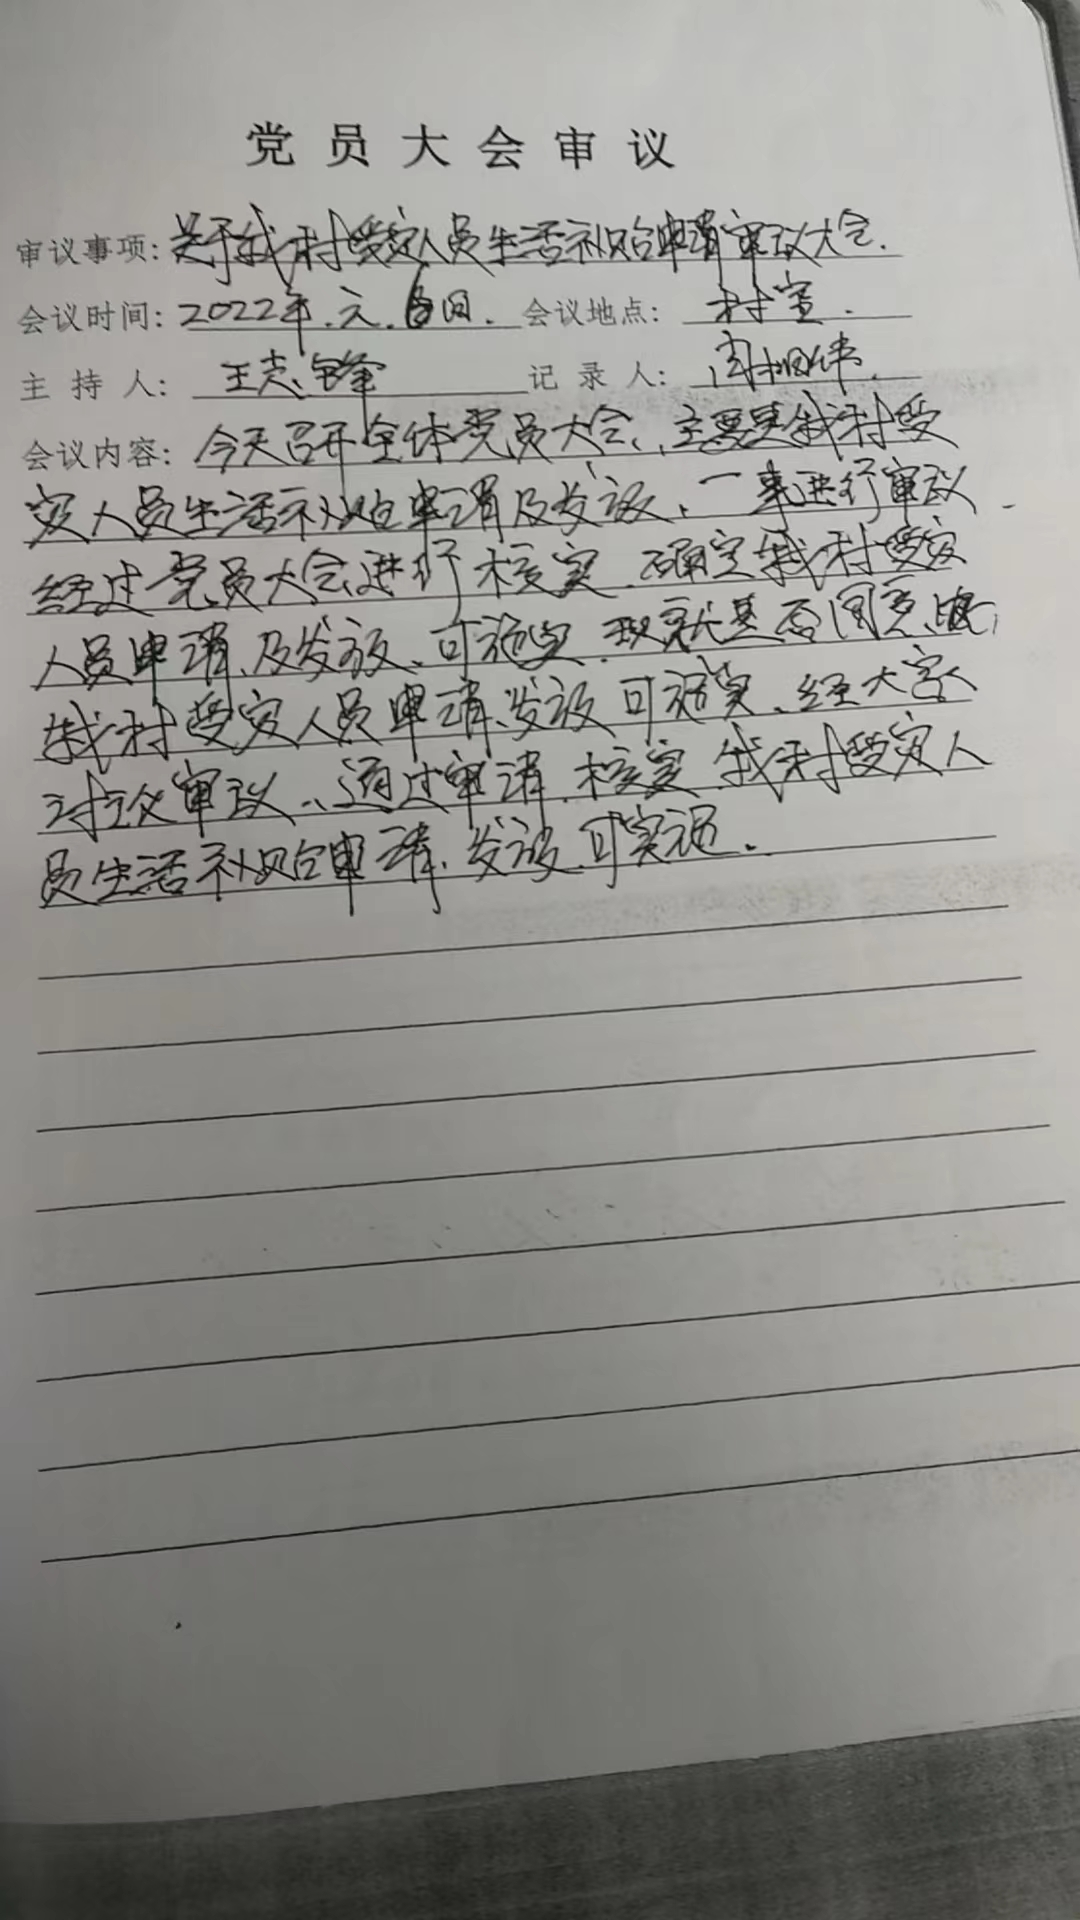 党员大会审议
审议事项: 关于我村受灾人员生活补贴申请审议大会.
会议时间: 2022年.元.6日. 会议地点: 村室.
主持人: 王志锋 记录人: 周
会议内容: 今天召开全体党员大会、主要是我村受
灾人员生活补贴申请及发放、一事进行审议.
经过党员大会进行核实.确定我村受灾
人员申请、及发放、可施实.现就是否同意
我村受灾人员申请、发放可施实、经大家
对议审议、通过申请.核实.我村受灾人
员生活补贴申请、发放.可实施.